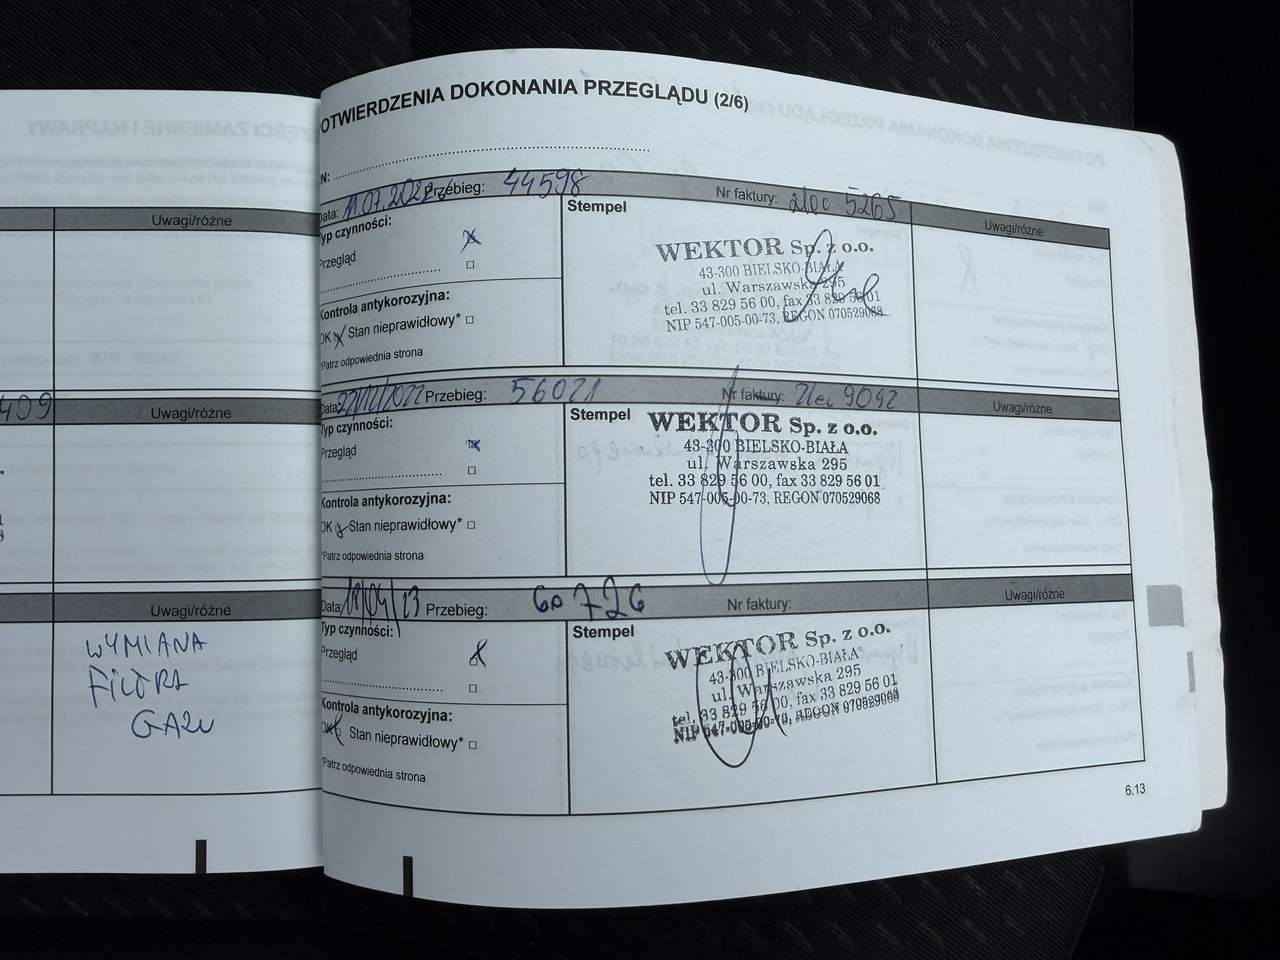 409
Uwagi/różne
Uwagi/różne
Uwagi/różne
WYMIANA
FILTRA
GAZU
OTWIERDZENIA DOKONANIA PRZEGLĄDU (2/6)
N:
Data: 11.07.2022 Przebieg: 44598 Nr faktury: zlec 5265 Uwagi/różne
Typ czynności:
Przegląd
Kontrola antykorozyjna:
OK Stan nieprawidłowy*
*Patrz odpowiednia strona
Stempel
WEKTOR Sp. z o.o.
43-300 BIELSKO-BIAŁA
ul. Warszawska 295
tel. 33 829 56 00, fax 33 829 56 01
NIP 547-005-00-73, REGON 070529068
Data 22/12/2022 Przebieg: 56021 Nr faktury: Zlec 9092 Uwagi/różne
Typ czynności:
Przegląd
Kontrola antykorozyjna:
OK Stan nieprawidłowy*
*Patrz odpowiednia strona
Stempel
WEKTOR Sp. z o.o.
43-300 BIELSKO-BIAŁA
ul. Warszawska 295
tel. 33 829 56 00, fax 33 829 56 01
NIP 547-005-00-73, REGON 070529068
Data 18/04/23 Przebieg: 60726 Nr faktury: Uwagi/różne
Typ czynności:
Przegląd
Kontrola antykorozyjna:
OK Stan nieprawidłowy*
*Patrz odpowiednia strona
Stempel
WEKTOR Sp. z o.o.
43-300 BIELSKO-BIAŁA
ul. Warszawska 295
tel. 33 829 56 00, fax 33 829 56 01
NIP 547-005-00-73, REGON 070529068
6.13